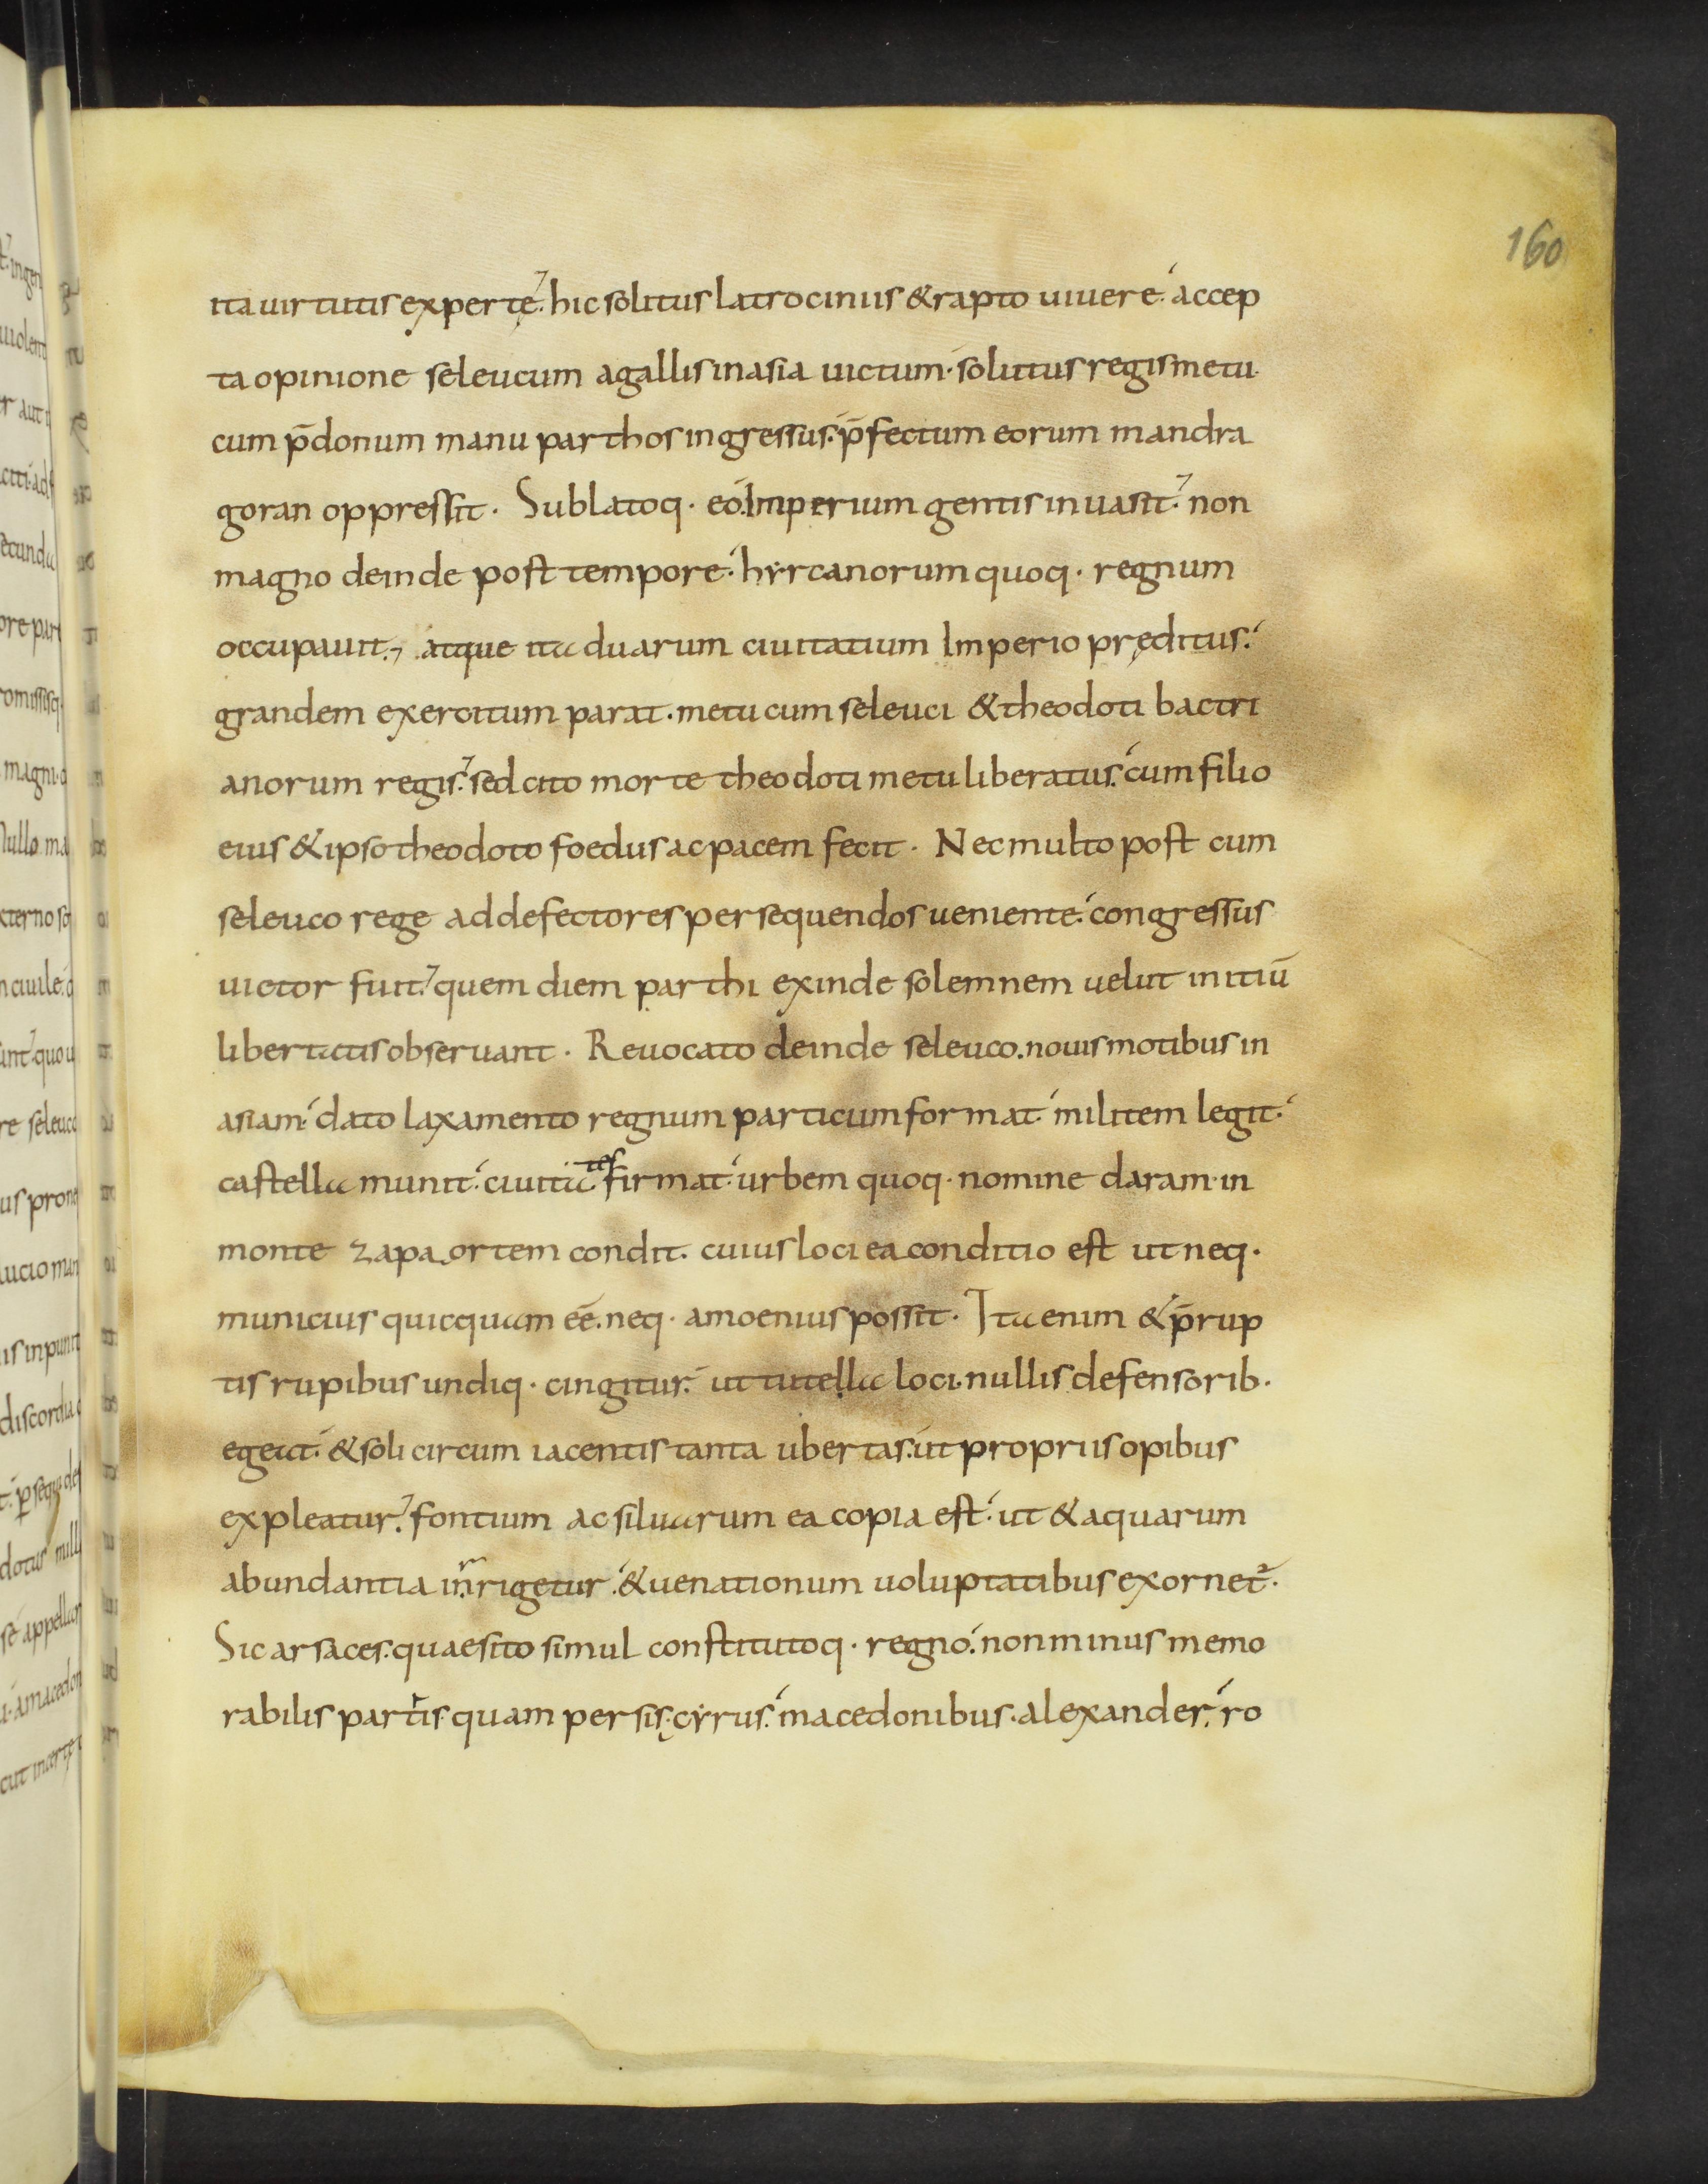 160
ita uirtutis expertę. hic solitus latrociniis & rapto uiuere. accep
ta opinione seleucum a gallis in asia uictum. solutus regis metu.
cum p̄donum manu parthos ingressus. p̄fectum eorum mandra
goran oppressit. Sublatoq. eo. Imperium gentis inuasit. non
magno deinde post tempore. hyrcanorum quoq. regnum
occupauit. atque ita duarum ciuitatium Imperio pręditus.
grandem exercitum parat. metu cum seleuci & theodoti bactri
anorum regis. sed cito morte theodoti metu liberatus. cum filio
eius & ipso theodoto foedus ac pacem fecit. Nec multo post cum
seleuco rege ad defectores persequendos ueniente. congressus
uictor fuit. quem diem parthi exinde solemnem uelut initiū
libertatis obseruant. Reuocato deinde seleuco. nouis motibus in
asiam. dato laxamento regnum particum format. militem legit.
castella munit. ciuitates firmat. urbem quoq. nomine daram. in
monte zapaortem condit. cuius loci ea conditio est ut neq.
municius quicquam eē. neq. amoenius possit. Ita enim & p̄rup
tis rupibus undiq. cingitur. ut tutella loci. nullis defensorib.
egeat. & soli circum iacentis tanta ubertas. ut propriis opibus
expleatur. fontium ac siluarum ea copia est. ut & aquarum
abundantia inrrigetur. & uenationum uoluptatibus exornet².
Sic arsaces. quaesito simul constitutoq. regno. non minus memo
rabilis partis. quam persis. cyrus. macedonibus. alexander. ro